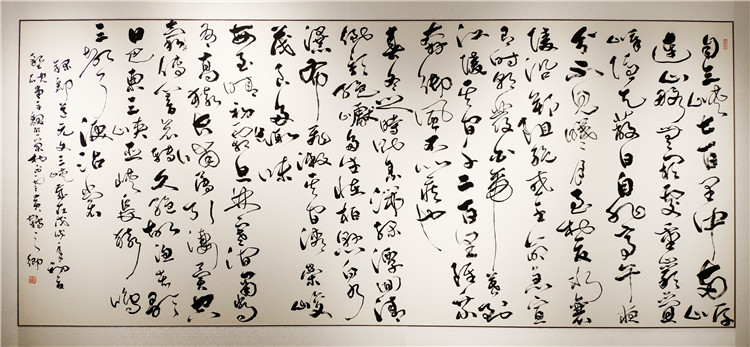 自三峽七百里中兩岸
連山略無闕處重巖疊
嶂隱天蔽日自非亭午夜
分不見曦月至於夏水襄
陵沿溯阻絕或王命急宣
有時朝發白帝暮到
江陵其間千二百里雖乘
奔御風不以疾也
春冬之時則素湍綠潭回清
倒影絕巘多生怪柏懸泉
瀑布飛漱其間清榮峻
茂良多趣味
每至晴初霜旦林寒澗肅常
有高猿長嘯屬引淒異空
谷傳響哀轉久絕故漁者歌
曰巴東三峽巫峽長猿鳴
三聲淚沾裳
錄酈道元文三峽